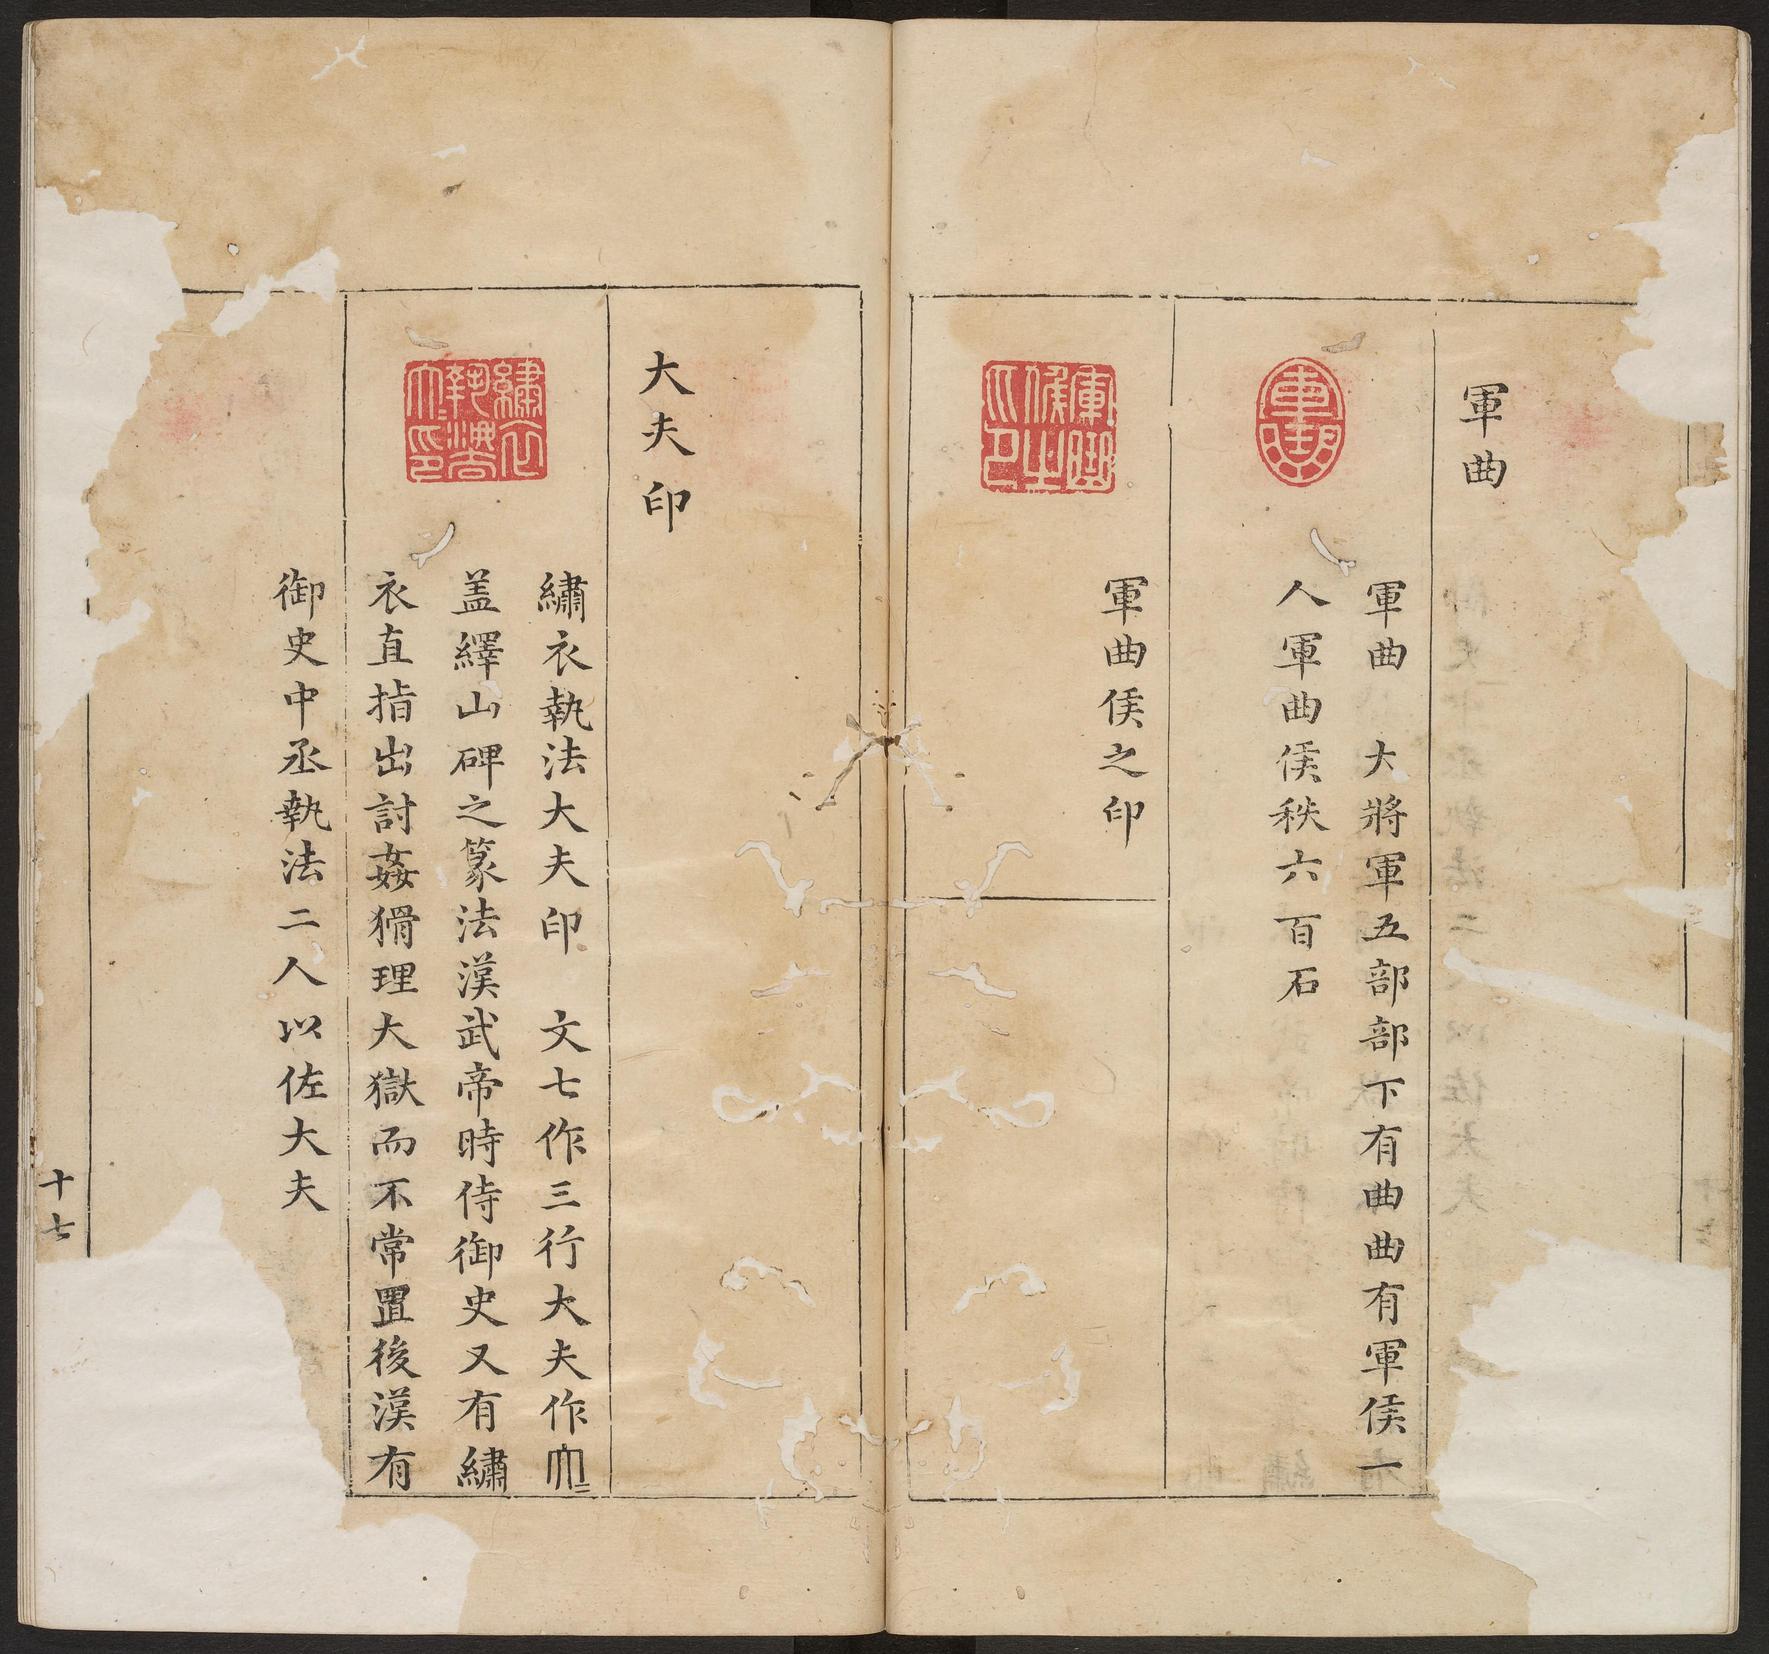 軍曲
軍曲　大將軍五部部下有曲曲有軍侯一
人軍曲侯秩六百石
軍曲侯之印
軍曲侯之印
大夫印
繡衣執法大夫印　文七作三行大夫作夫二
繡衣執法大夫印
盖繹山碑之篆法漢武帝時侍御史又有繡
衣直指出討姦猾理大獄而不常置後漢有
御史中丞執法二人以佐大夫
十七